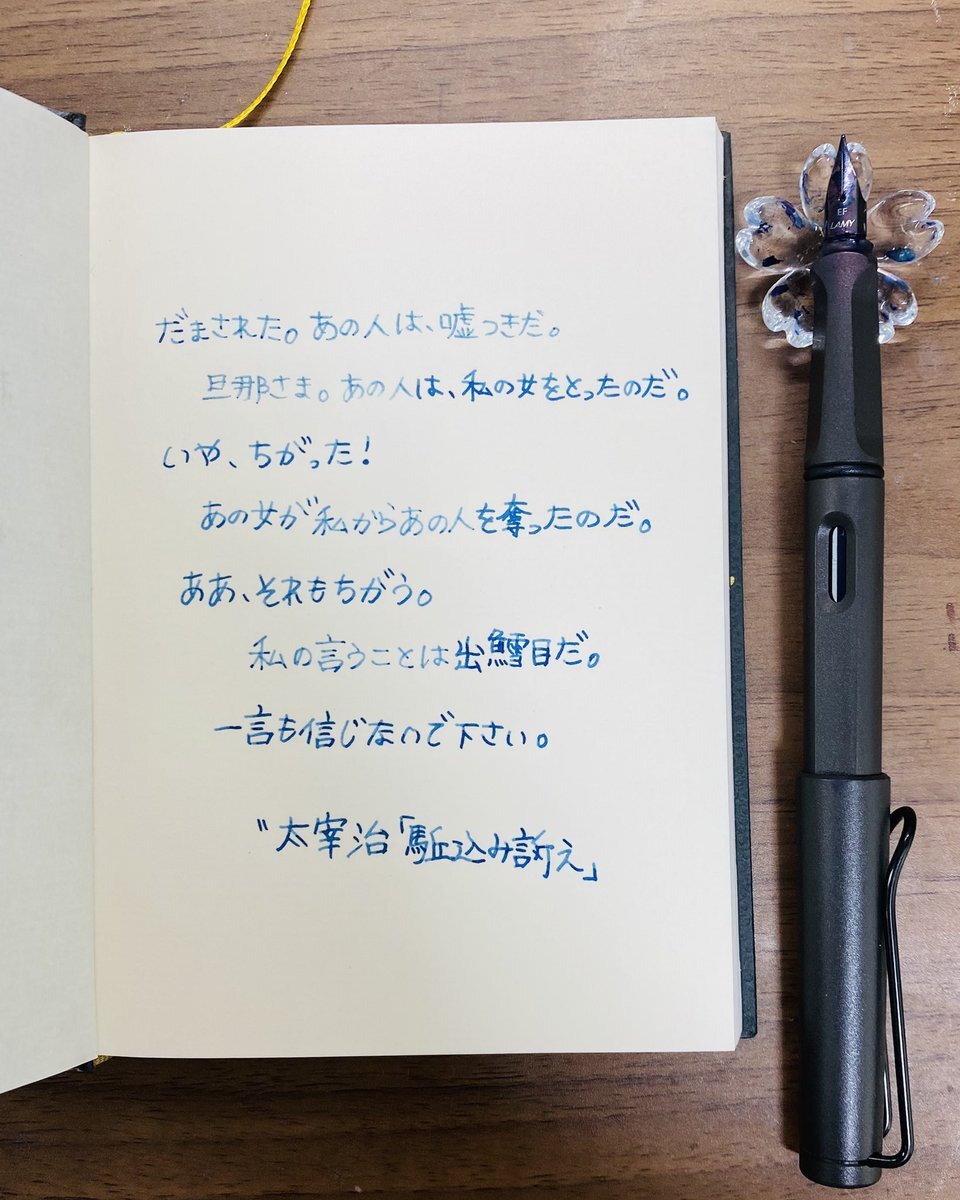 だまされた。あの人は、嘘つきだ。
旦那さま。あの人は、私の女をとったのだ。
いや、ちがった!
あの女が私からあの人を奪ったのだ。
ああ、それもちがう。
私の言うことは出鱈目だ。
一言も信じないで下さい。
〃太宰治「駈込み訴え」
EF
LAMY